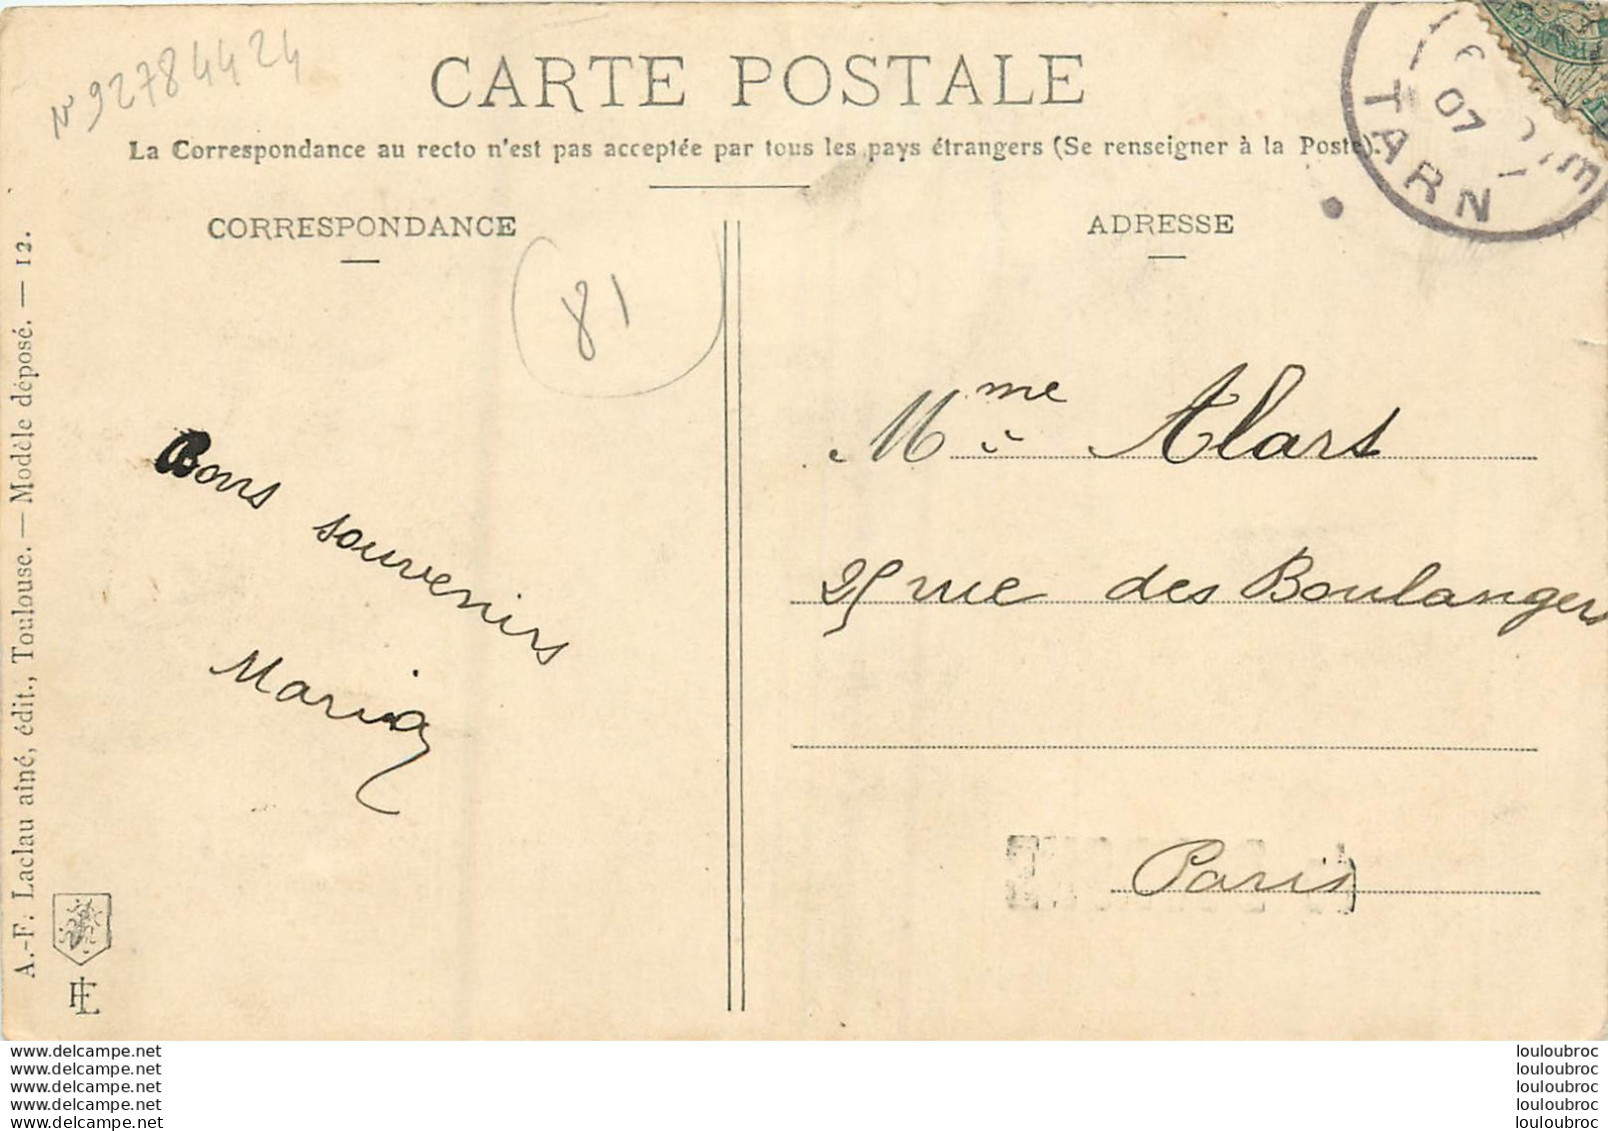 N 92784424
CARTE POSTALE
La Correspondance au recto n'est pas acceptée par tous les pays étrangers (Se renseigner à la Poste).
CORRESPONDANCE
ADRESSE
07
TARN
81
Mme Alars
25 rue des Boulangers
Paris
Bons souvenirs
Maria
A.-F. Laclau aîné, édit., Toulouse. — Modèle déposé. — 12.
www.delcampe.net
www.delcampe.net
www.delcampe.net
www.delcampe.net
www.delcampe.net
louloubroc
louloubroc
louloubroc
louloubroc
louloubroc